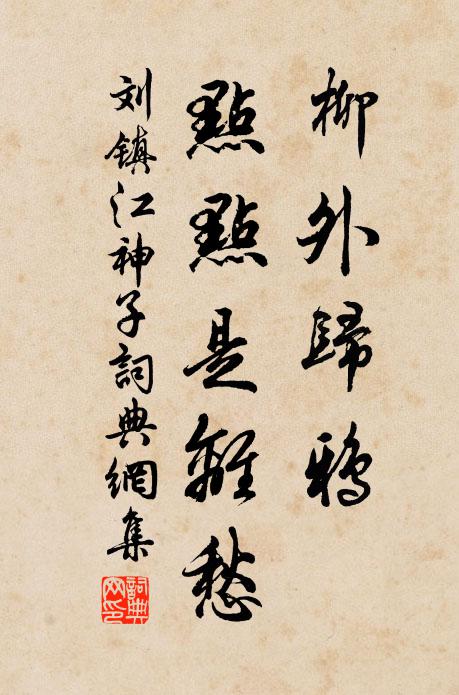 柳外歸鴉
點點是離愁
刘镇江神子詞典網集
詞典網印